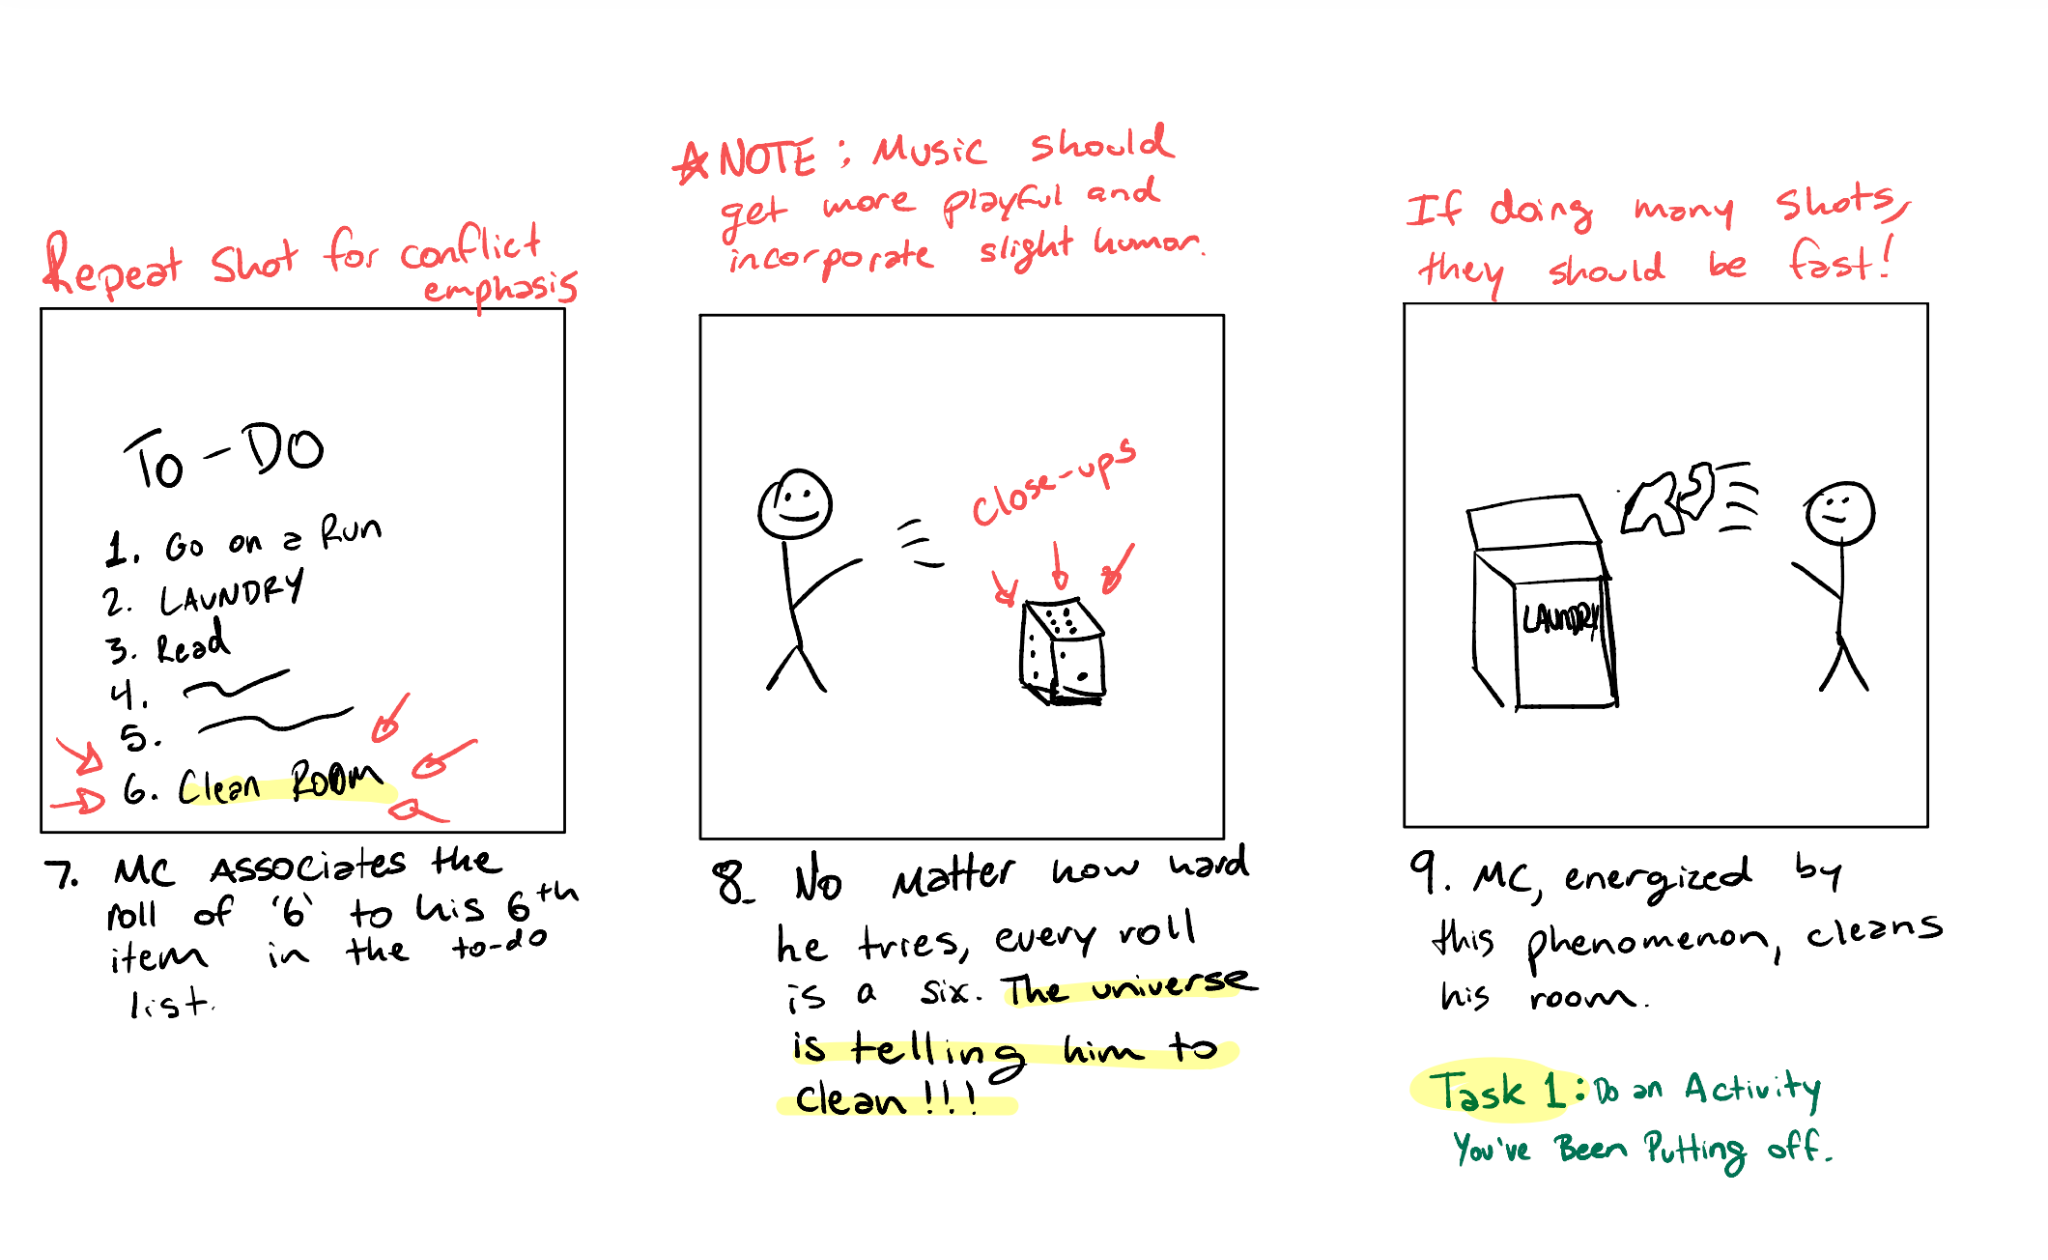 Repeat Shot for conflict
emphasis
To-Do
1. Go on a Run
2. LAUNDRY
3. Read
4.
5.
6. Clean Room
7. MC Associates the
roll of '6' to his 6th
item in the to-do
list.
☆NOTE: Music should
get more playful and
incorporate slight humor.
close-ups
8. No matter how hard
he tries, every roll
is a six. The universe
is telling him to
clean!!!
If doing many shots,
they should be fast!
LAUNDRY
9. MC, energized by
this phenomenon, cleans
his room.
Task 1: Do an Activity
You've Been Putting off.